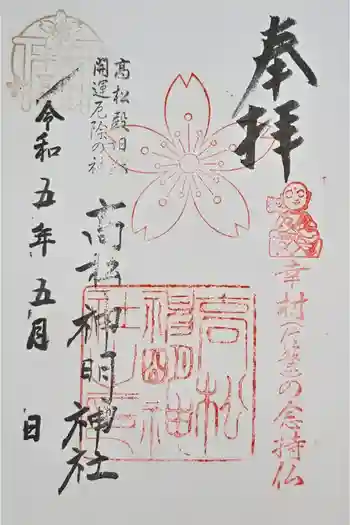 奉拝
幸村(信繁)の念持仏
高松神明神社
高松殿旧址
開運厄除の社
高松神明神社
令和五年五月 日